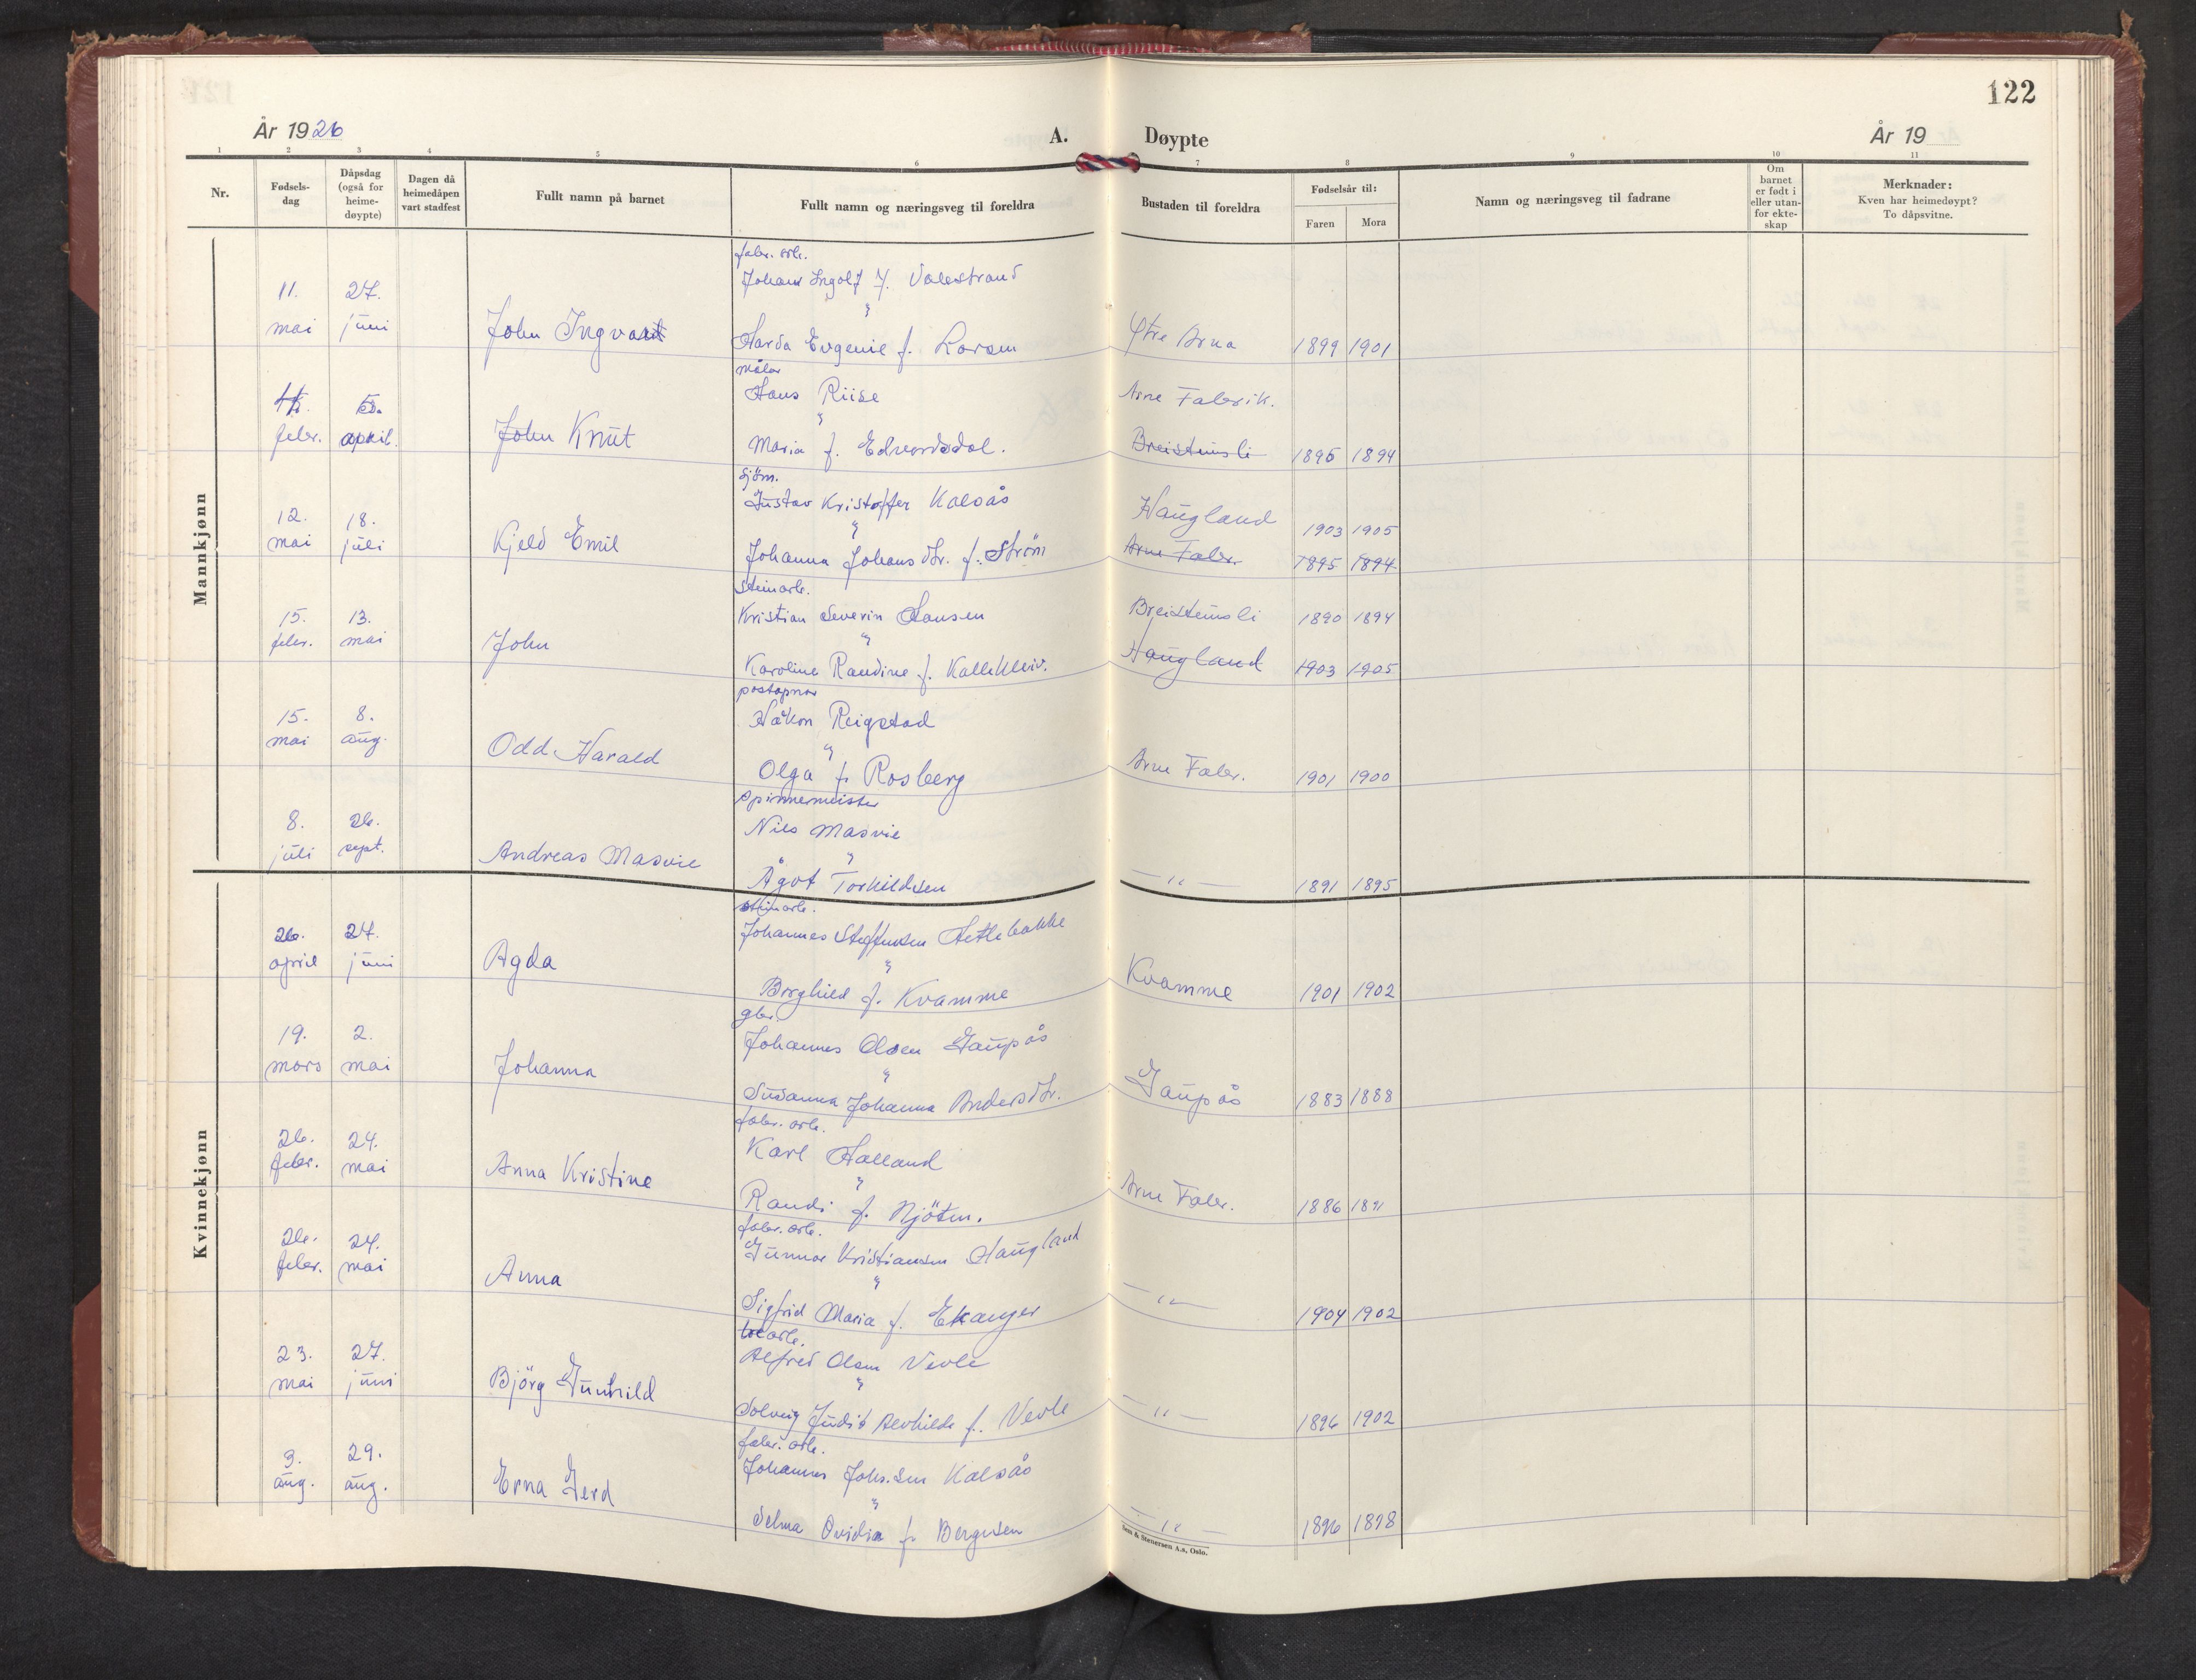 122
År 1926
A. Døypte
År 19
1 2 3 4 5 6 7 8 9 10 11
Nr.
Fødsels-
dag
Dåpsdag
(også for
heime-
døypte)
Dagen då
heimedåpen
vart stadfest
Fullt namn på barnet
Fullt namn og næringsveg til foreldra
Bustaden til foreldra
Fødselsår til:
Faren Mora
Namn og næringsveg til fadrane
Om
barnet
er født i
eller utan-
for ekte-
skap
Merknader:
Kven har heimedøypt?
To dåpsvitne.
Mannkjønn
fabr. arb.
Johan Ingolf J. Valestrand
11. 27.
mai juni John Ingvart "
Harda Evgenie f. Larsen Ytre Arna 1899 1901
målar
Hans Riise Arne Fabrik.
5.
febr. april. John Knut "
Maria f. Edvardsdal. Breisteinsli 1895 1894
sjöm.
Gustav Kristoffer Kalsås Haugland 1903 1905
12. 18.
mai juli Kjeld Emil "
Johanna Johansdtr. f. Ström Arne Fabr. 1895 1894
steinarb.
Kristian Severin Hansen Breisteinsli 1890 1894
15. 13.
febr. mai John "
Karoline Randine f. Kallekleiv. Haugland 1903 1905
postopnar
Håkon Reigstad
15. 8.
mai aug. Odd Harald "
Olga f. Rosberg Arne Fabr. 1901 1900
spinnemeister
Nils Masvie
8. 26.
juli sept. Andreas Masvie "
Ågot Torkildsen — " — 1891 1895
Kvinnekjønn
steinarb.
Johannes Steffensen Hettebakke
26. 27.
april juni Agda "
Borghild f. Kvamme Kvamme 1901 1902
gbr.
Johannes Olsen Gaupås
19. 2.
mars mai Johanna "
Susanna Johanna Andersdtr. Gaupås 1883 1888
fabr. arb.
Karl Halland
26. 24.
febr. mai Anna Kristine "
Randi f. Njöten. Arne Fabr. 1886 1891
fabr. arb.
Gunnar Kristiansen Haugland
26. 24.
febr. mai Anna "
Sigfrid Maria f. Ekanger — " — 1904 1902
arb.
Alfred Olsen Vevle
23. 27.
mai juni Björg Gunhild "
Solveig Judit Alvhilde f. Vevle — " — 1896 1902
fabr. arb.
Johannes Johs.sen Kalsås
3. 29.
aug. aug. Erna Gerd "
Selma Ovidia f. Bergesen — " — 1896 1898
Sem & Stenersen A.s, Oslo.